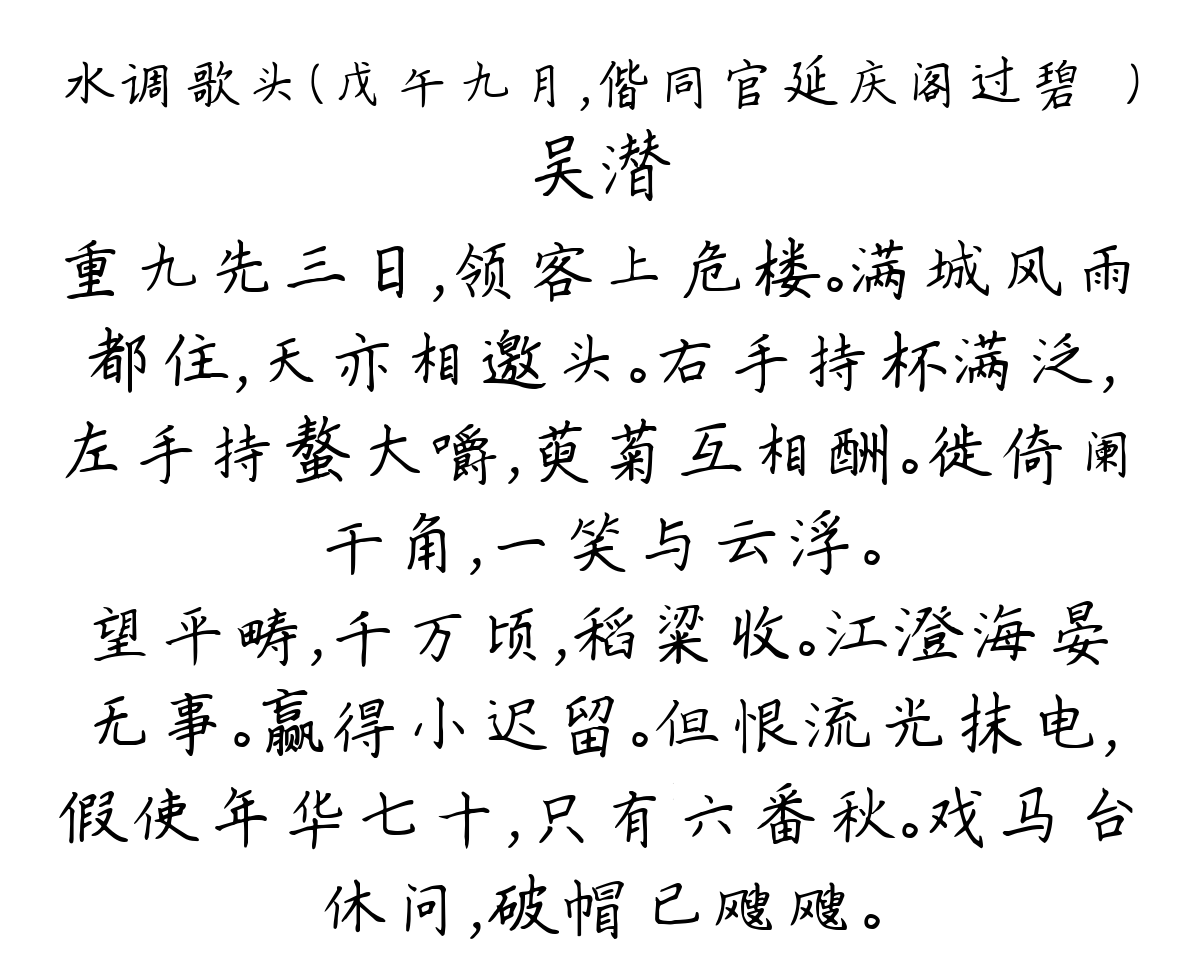 水调歌头(戊午九月,偕同官延庆阁过碧 )
吴潜
重九先三日,领客上危楼。满城风雨
都住,天亦相邀头。右手持杯满泛,
左手持螯大嚼,萸菊互相酬。徙倚阑
干角,一笑与云浮。
望平畴,千万顷,稻粱收。江澄海晏
无事。赢得小迟留。但恨流光抹电,
假使年华七十,只有六番秋。戏马台
休问,破帽已飕飕。